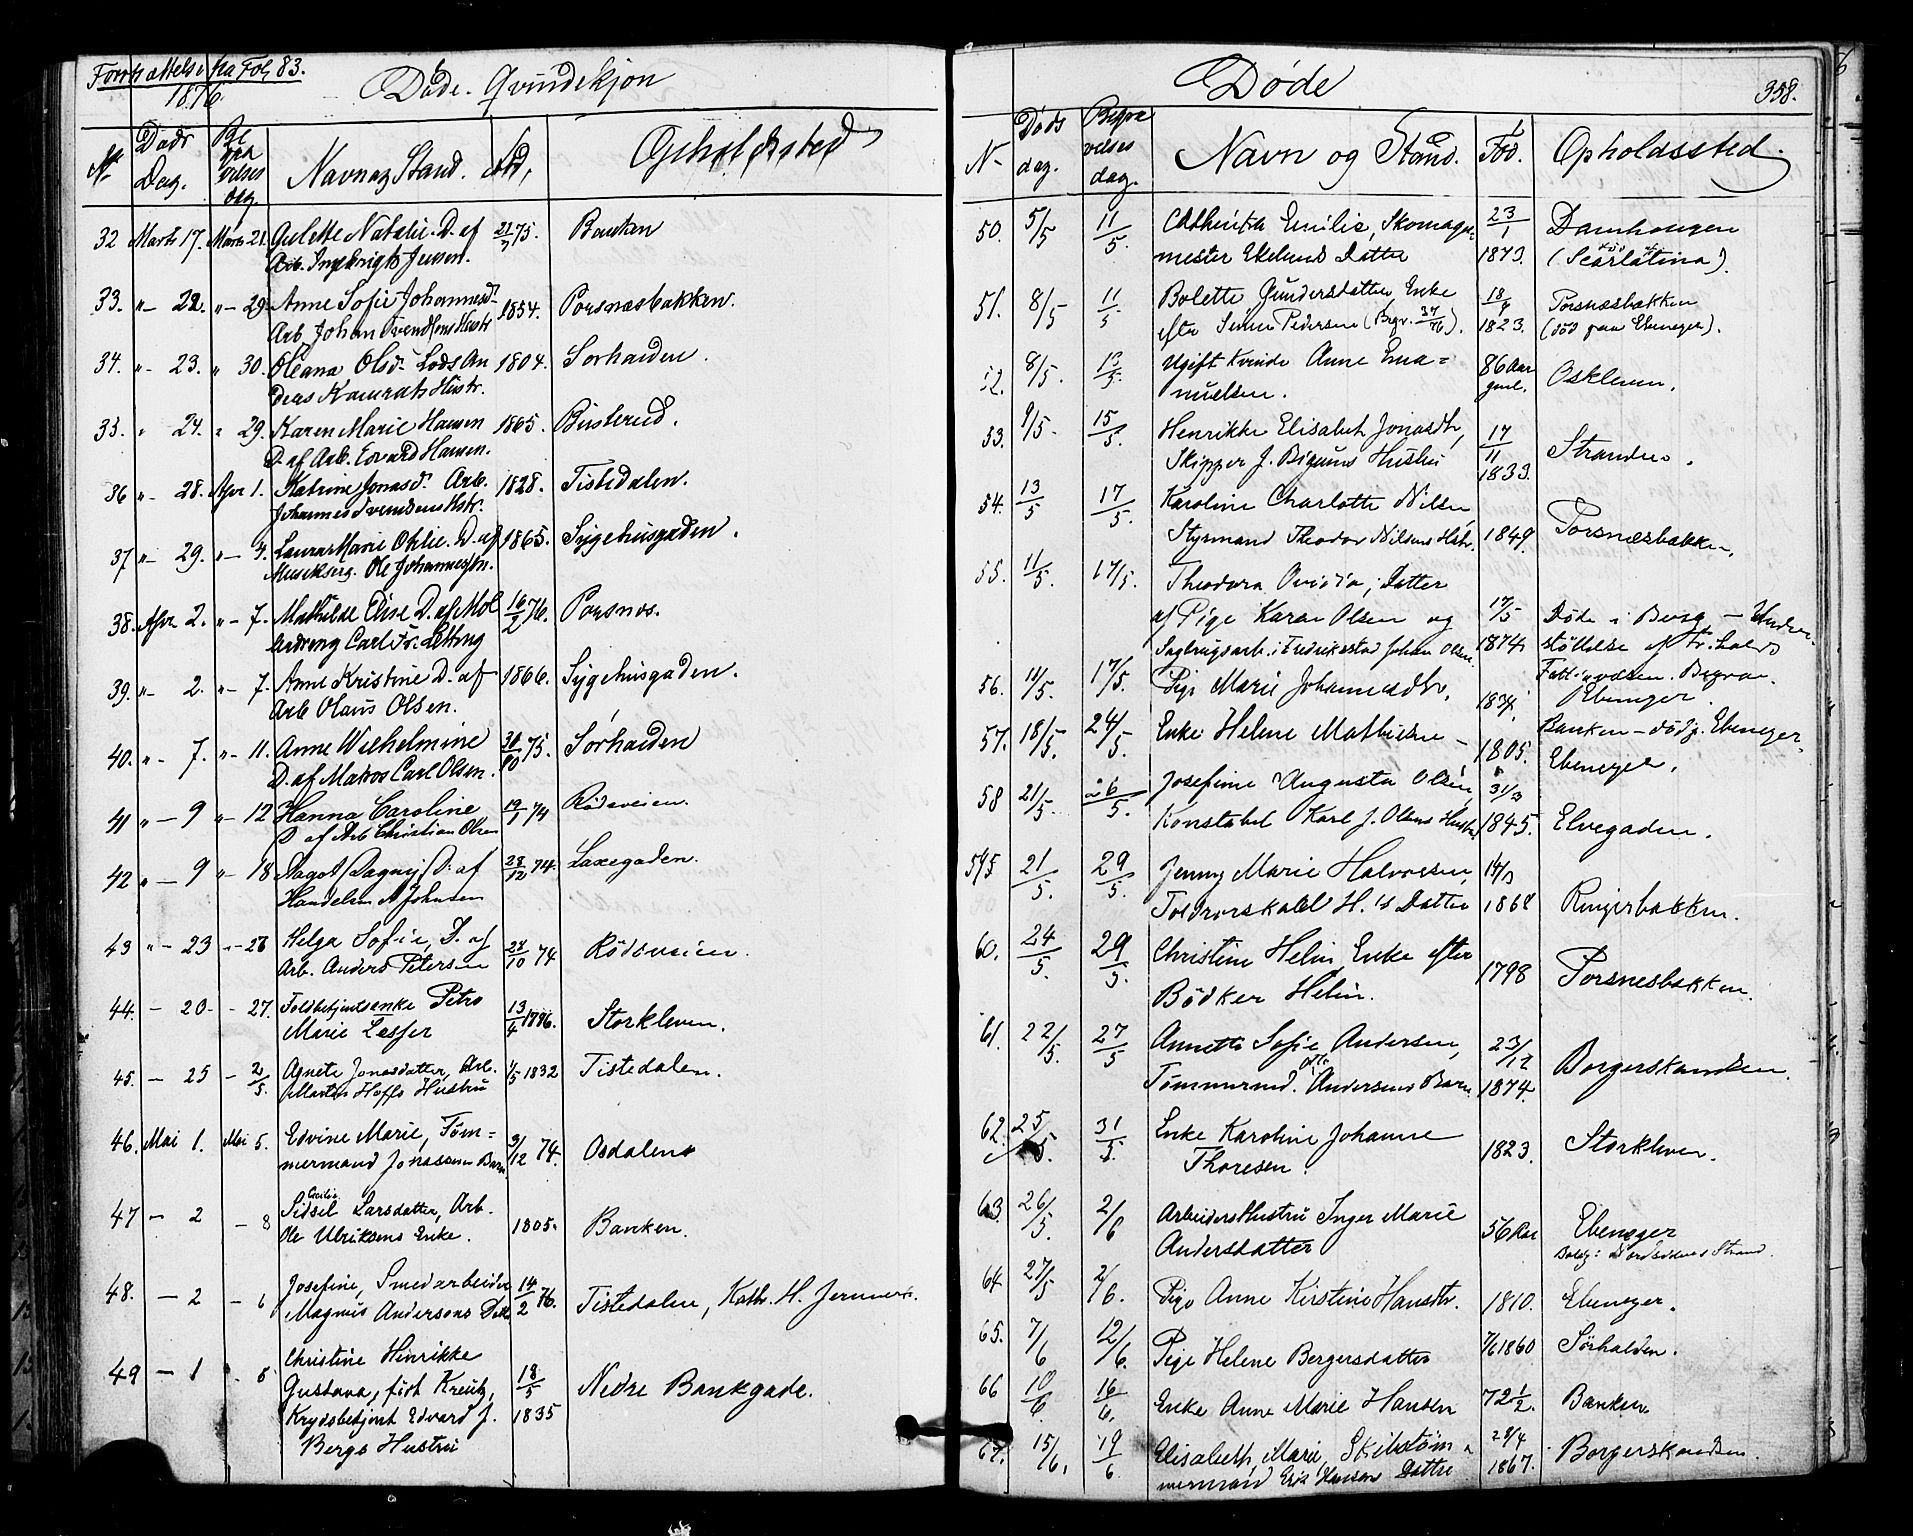 Fortsættelse fra Fol. 83.
1876.
Døde. Qvindekjøn
No Døds Dag. Begravelses Dag. Navn og Stand. Fød, Opholdssted
32 Marts 17. Marts 21. Gulette Natalie. D. af 21/7 75. Banken
Arb. Ingebrigt Jensen.
33. „ - 22. „ - 29. Anne Sofie Johannesd. 1854. Porsnæsbakken.
Arb. Johan Svendsens Hustr.
34. „ - 23. „ 30. Oleana Olsd. Lods An 1804. Sørhalden.
ders Kamrats Hustr.
35. „ 24. „ 29. Karen Marie Hansen 1865. Busterud.
D. af Arb. Edvard Hansen.
36 „ - 28. Apr 1. Katrine Jonasd. Arb. 1828. Tistedalen.
Johannes Svendsens Hstr.
37 „ - 29. „ - 4. Laura Marie Othlie. D. af 1865. Sygehusgaden.
Musikserg. Ole Johannesen.
38. Apr 2. „ - 7. Mathilde Elise D. af Mol 16/2 76. Porsnes.
erdreng Carl Fr.
39. „ - 2. „ - 7. Anne Kristine D. af 1866. Sygehusgaden.
Arb Olaus Olsen.
40. „ - 7. „ - 11. Anne Wilhelmine 30/10 75. Sørhalden
D. af Matros Carl Olsen.
41 „ - 9 „ - 12 Hanna Caroline 19/1 74 Rødsveien.
D af Arb Christian Olsen
42 „ - 9 „ - 18 Dagot (Dagny) D: af 28/12 74. Laxegaden.
Handelsm A Johnsen
43 „ - 23 „ - 28 Helga Sofie, D. af 28/10 74 Rödsveien.
Arb. Anders Petersen
44. - 20 - - 27. Toldbetjentsenke Petro 13/4 1796. Storkleven.
Marie Lesser
45. - 25 - 2/5 Agnete Jonasdatter, Arb. 1/5 1832 Tistedalen.
Martin Hoffs Hustru
46. Mai 1. Mai 5. Edvine Marie, Töm= 3/12 74. Osdalen
mermand Jonassens Barn
47 - 2 - 8 Sidsel Cecilie Larsdatter, Arb. 1805. Banken.
Ole Ulriksens Enke.
48. - 2 - 6 Josefine, Smedarbeider 14/2 76. Tistedalen, Kath. H.
Magnus Andersens Dat
49 - 1 - 6 Christine Hinrikke 18/5 1835 Nedre Bankgade.
Gustava, født Kreutz,
Krydsbetjent Edvard J.
Bergs Hustru
Døde 358.
N- Døds dag. Begravelses dag. Navn og Stand. Fød. Opholdssted.
50. 5/5 11/5 Cathinka Emilie, Skomager 23/1 1873. Damhougen
mester Ekelund Datter (Scarlatina).
51. 8/5 11/5 Bolette Gundersdatter, Enke 18/9 1823. Porsnæsbakken
efter Simen Pedersen (Begr. 37/76). (død paa Ebenezer).
52. 8/5. 13/5. Ugift Kvinde Anne Ema= 86 Aar gml. Oskleven.
nuelsen.
53. 9/5. 15/5. Henrikke Elisabet Jonasdtr, 17/11 1833. Stranden.
Skipper J. Hustru
54. 13/5 17/5. Karoline Charlotte Nilsen, 1849. Porsnæsbakken,
Styrmand Theodor Nilsens Hstr.
55. 11/5. 17/5. Theodora Ovidia, Datter
af Pige Karen Olsen og 17/5 1874 Døde i Berg - Under-
Sagbrugsarb. i Fredrikstad Johan Olsen støttelse af Fr.halds
Fattigvæsen. Begrav.
56. 11/5. 17/5. Pige Marie Johannesdtr. Ebenezer.
57. 18/5. 24/5. Enke Helene Mathiesen - 1805. Banken - død p. Ebenezer.
Ebenezer.
58 21/5. 26/5. Josefine Augusta Olsen, 31/3 1845. Elvegaden.
Konstabel Karl J. Olsens Hustr
59 21/5. 29/5. Jenny Marie Halvorsen, 14/3 1868 Ringerbakken.
Toldrorskarl H.'s Datter
60. 24/5. 29/5. Christine Helin Enke efter 1798 Porsnesbakken.
Bödker Helin.
61. 22/5. 27/5 Annette Sofie Andersen, 23/12 1874. Borgerskandsen.
Tømmermd. Otto Andersens Barn
62. 25/5. 31/5. Enke Karoline Johanne 1823. Storkleven.
Thoresen.
63. 26/5. 2/6 Arbeiders Hustru Inger Marie 56 Aar Ebenezer
Andersdatter Bolig: Nordsidens Strand.
64. 27/5 2/6. Pige Anne Kirstine Hansdtr. 1810. Ebenezer.
65. 7/6 12/6. Pige Helene Bergersdatter 1860 Sörhalden.
66 10/6 16/6. Enke Anne Marie Hansen 72 1/2. Banken
67. 15/6. 19/6 Elisabeth Marie, Skibstöm= 28/4 1867. Borgerskandsen.
mermand Erik Hansens Dattre